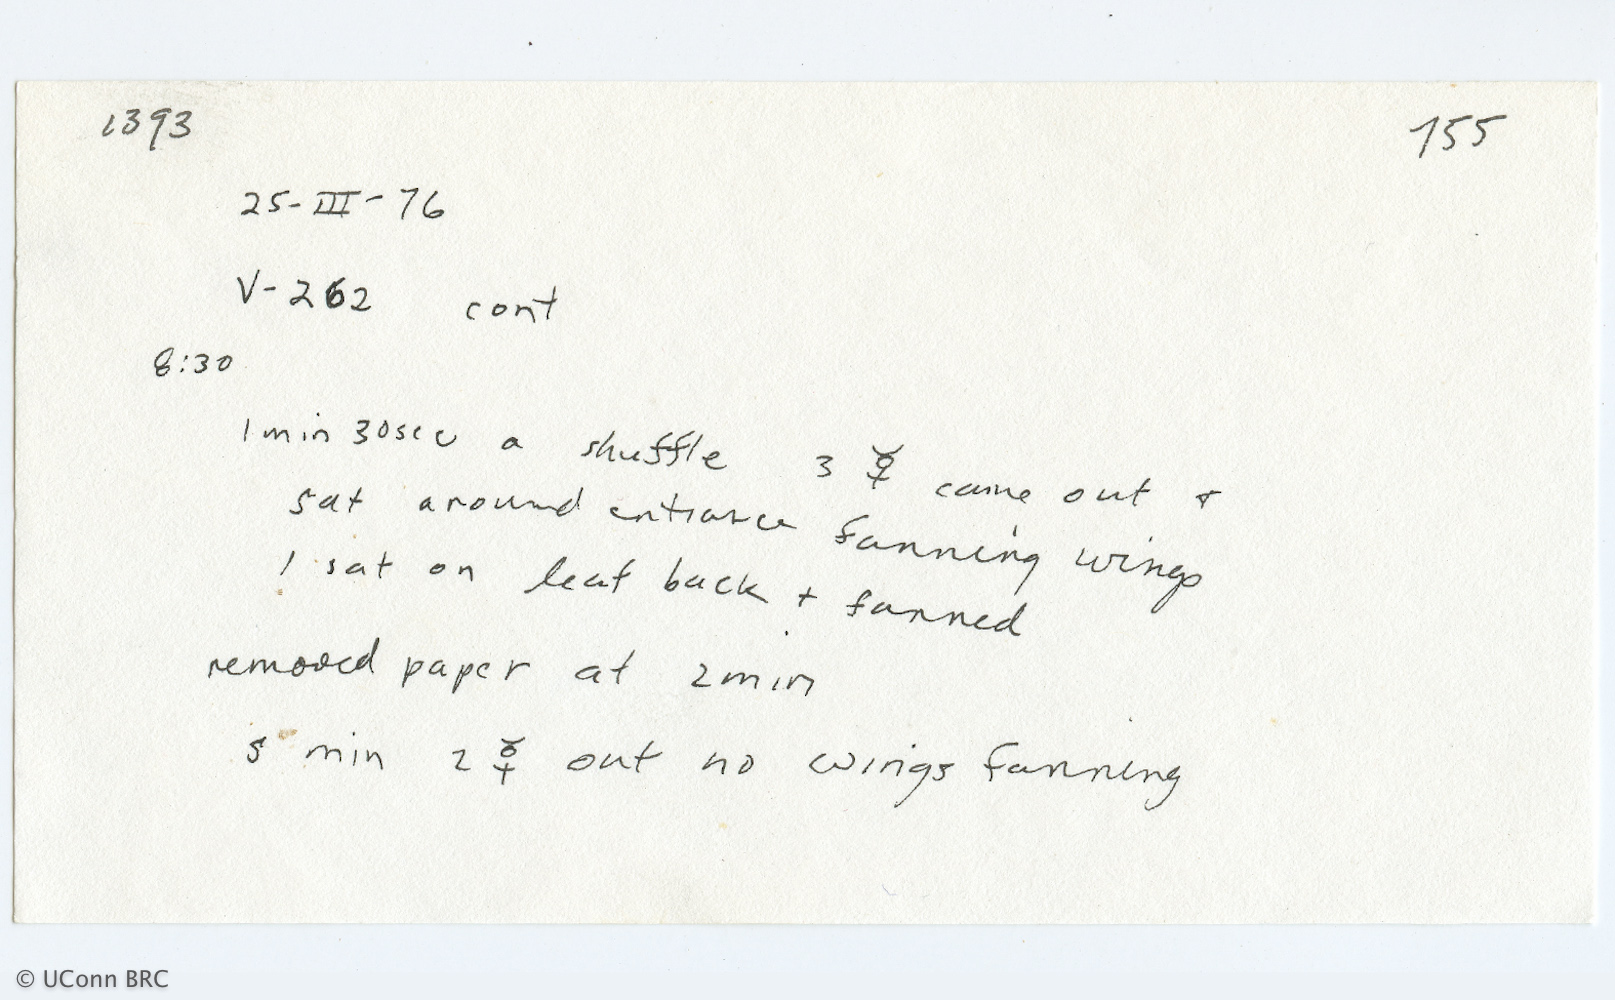 1393 155
25-III-76
V-262 cont
8:30
1 min 30 sec a shuffle 3 ☿ came out +
sat around entrance fanning wings
1 sat on leaf back + fanned
removed paper at 2 min
5 min 2 ☿ out no wings fanning
© UConn BRC